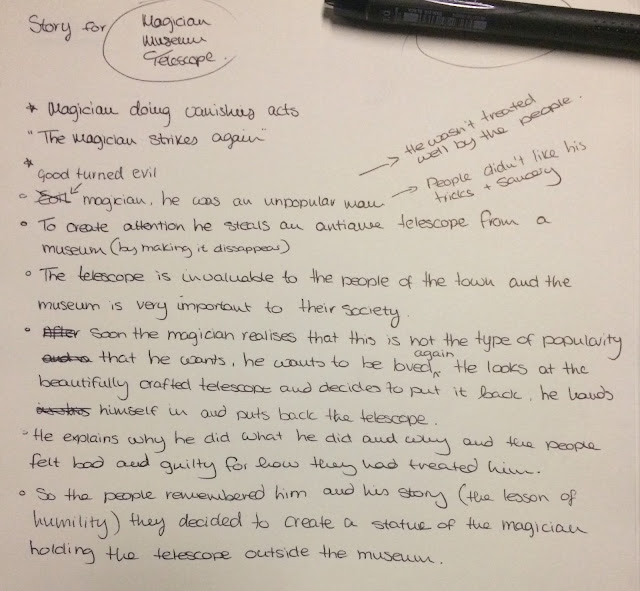 Story for
Magician
Museum
Telescope.
* Magician doing vanishing acts
"The Magician strikes again"
*
good turned evil
→ He wasn't treated
well by the people.
→ People didn't like his
tricks +
◦ Evil magician, he was an unpopular man
◦ To create attention he steals an antique telescope from a
museum (by making it dissappear)
◦ The telescope is invaluable to the people of the town and the
museum is very important to their society.
◦ After Soon the magician realises that this is not the type of popularity
that he wants, he wants to be loved again. He looks at the
beautifully crafted telescope and decides to put it back, he hands
himself in and puts back the telescope.
- He explains why he did what he did and why and the people
felt bad and guilty for how they had treated him.
◦ So the people remembered him and his story (the lesson of
humility) they decided to create a statue of the magician
holding the telescope outside the museum.